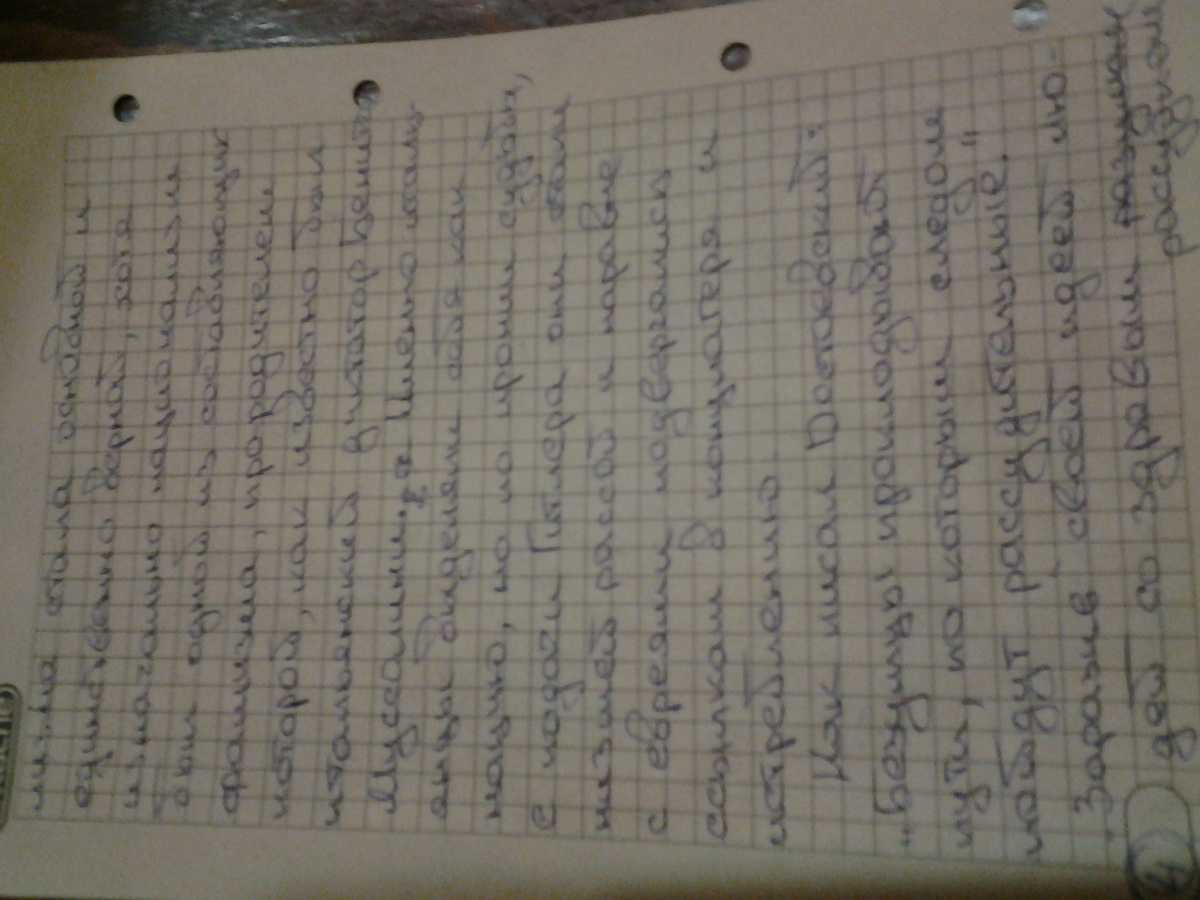 лизма стала основной и
единственно верной, хотя
изначально национализм
был одной из составляющих
фашизма, прородителем
которой, как известно был
итальянский диктатор Бенито
Муссолини. Именно italь-
янцы выделяли себя как
нацию, но по иронии судьбы,
с подачи Гитлера они стали
низшей рассой и наравне
с евреями подвергались
ссылкам в концлагеря и
истреблению.
Как писал Достоевский:
„Безумцы прокладывают
пути, по которым следом
пойдут рассудительные."
Заразив своей идеей лю-
дей со здравым
рассудком
4